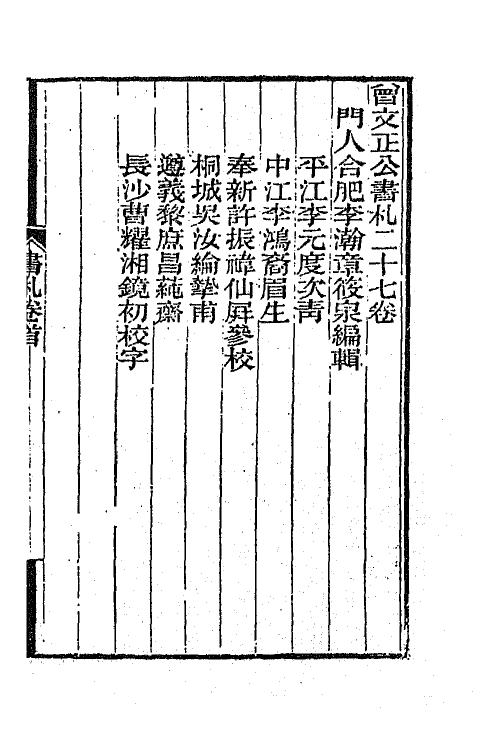 曾文正公書札二十七卷
門人合肥李瀚章筱泉編輯
平江李元度次青
中江李鴻裔眉生
奉新許振禕仙屏參校
桐城吳汝綸摯甫
遵義黎庶昌蒓齋
長沙曹耀湘鏡初校字
書札卷首